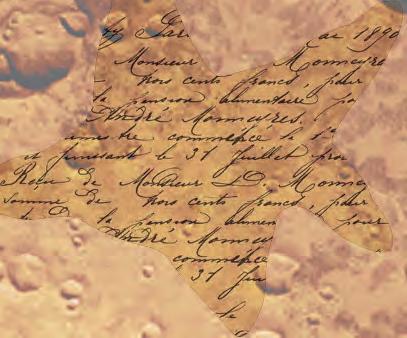 ay Par ac 1890
Monsieur Monmeyre
trois cents francs, pour
la pension alimentaire po
André Monneyres.
mestre commence le 1er
et finissant le 31 Juillet pro
Reçu de Monsieur D. Monne
Somme de trois cents francs, pour
la pension alimen pour
André Monney
commence
31 Jui
le